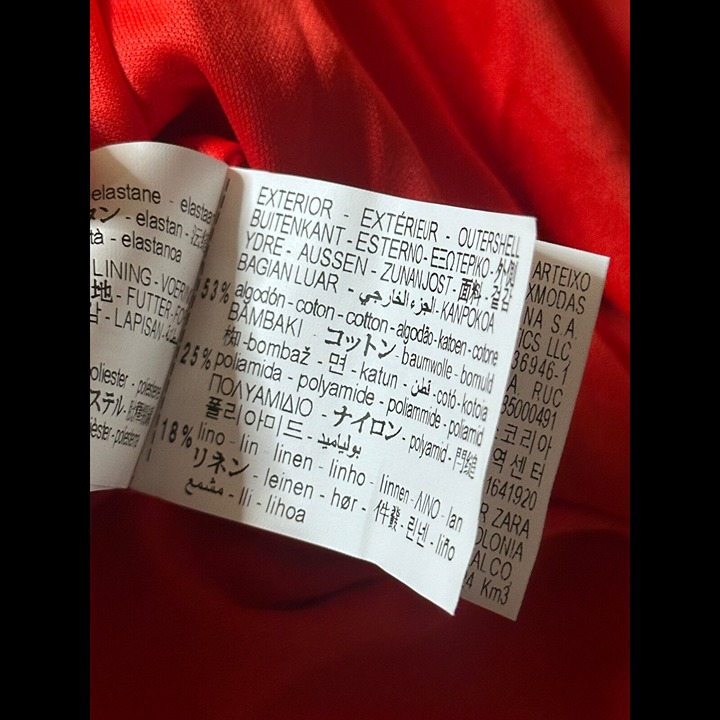 elastane - elastaan
ン - elastan -
tà - elastanoa
LINING - VOERING
地 - FUTTER - FO
감 - LAPISAN -
poliester - polyester
ステル -
poliéster - polesterra
EXTERIOR - EXTÉRIEUR - OUTERSHELL
BUITENKANT - ESTERNO - ΕΞΩΤΕΡΙΚΟ - 外側
YDRE - AUSSEN - ZUNANJOST - 面料 - 겉감
BAGIAN LUAR - الجزء الخارجي - KANPOKOA
53% algodón - coton - cotton - algodão - katoen - cotone
BAMBAKI コットン - baumwolle - bomuld
- bombaž - 면 - katun - قطن - cotó - kotoia
25% poliamida - polyamide - poliammide - poliamid
ΠΟΛΥΑΜΙΔΙΟ - ナイロン - polyamid -
폴리아미드 - بولياميد
18% lino - lin - linen - linho - linnen - ΛΙΝΟ - lan
リネン - leinen - hør - 린넨 - liño
مشمع - lli - lihoa
ARTEIXO
XMODAS
NA S.A.
TICS LLC
36946-1
A RUC
85000491
코리아
역센터
1641920
R ZARA
OLONIA
ALCO
4 Km3